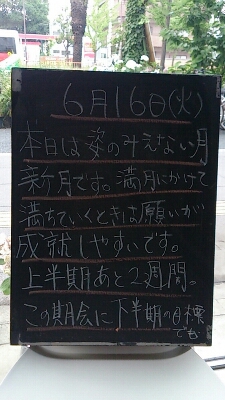 6月16日(火)
本日は姿のみえない月
新月です。満月にかけて
満ちていくときは願いが
成就しやすいです。
上半期あと2週間。
この期会に下半期の目標
でも